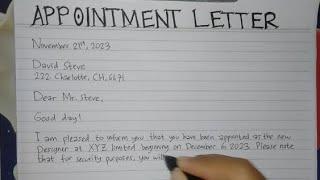 APPOINTMENT LETTER
November 21st, 2023
David Steve
222 Charlotte, CH, 6671
Dear Mr. Steve,
Good day!
I am pleased to inform you that you have been appointed as the new
Designer at XYZ limited beginning on December 6 2023. Please note
that for security purposes, you will